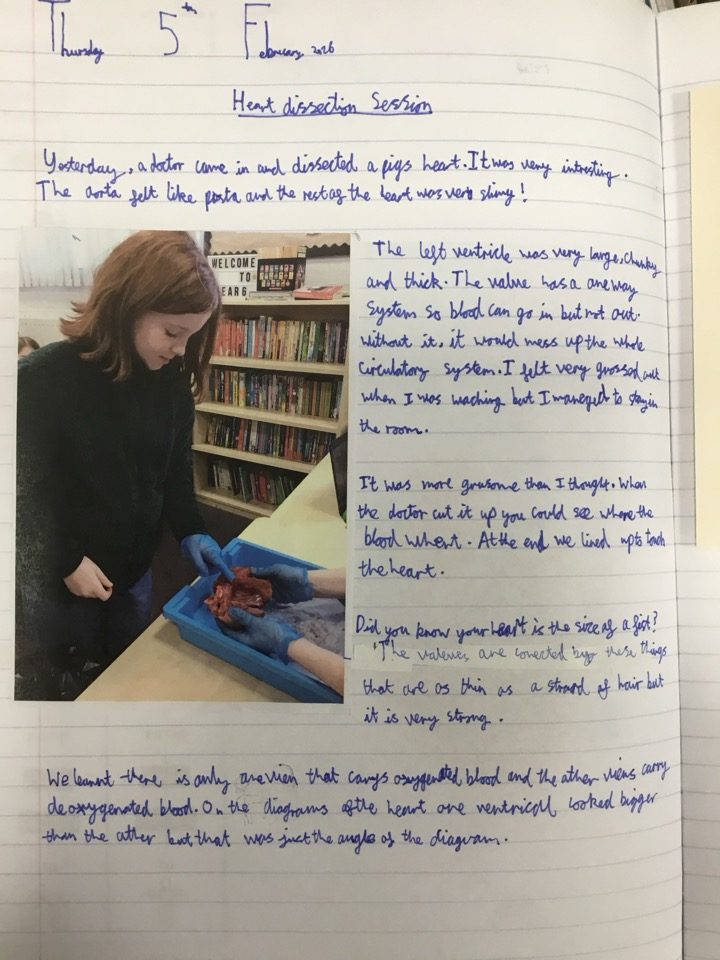 Thursday 5th February 2026
Heart dissection Session
Yesterday, a doctor came in and dissected a pigs heart. It was very intresting.
The aorta felt like pasta and the rest of the heart was very slimy!
WELCOME
TO
EAR6
The left ventricle was very large, chunky
and thick. The valve has a one way
system so blood can go in but not out.
Without it, it would mess up the whole
circulatory system. I felt very grossed out
when I was waching but I maneged to stay in
the room.
It was more grusome than I thought. When
the doctor cut it up you could see where the
blood whent. At the end we lined up to touch
the heart.
Did you know your heart is the size of a fist?
The valeves are conected by these things
that are as thin as a strand of hair but
it is very strong.
We learnt there is only one vien that carrys oxygenated blood and the other viens carry
deoxygenated blood. On the diagrams of the heart one ventricoll looked bigger
than the other but that was just the angle of the diagram.